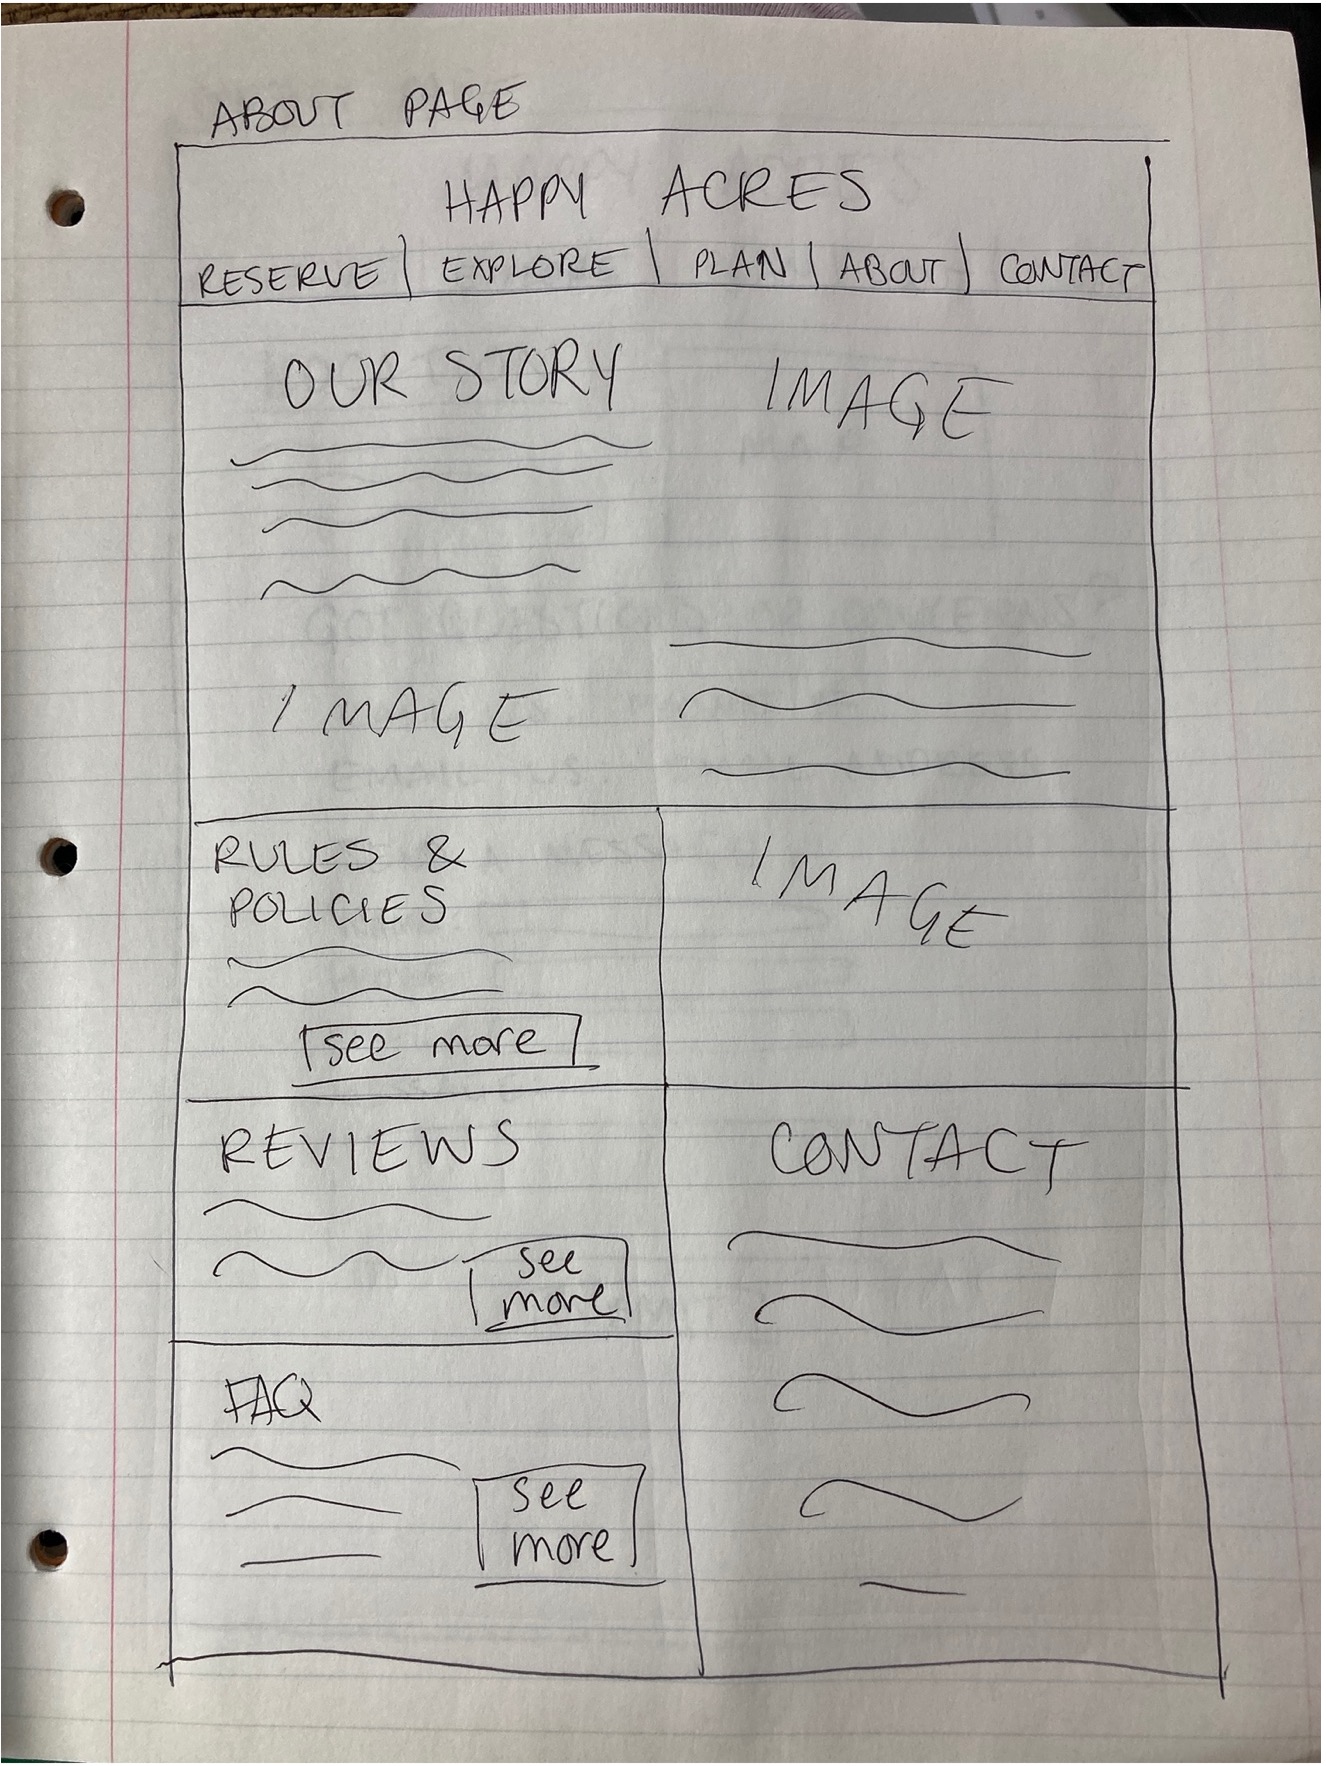 ABOUT PAGE
HAPPY ACRES
RESERVE | EXPLORE | PLAN | ABOUT | CONTACT
OUR STORY
IMAGE
IMAGE
RULES &
POLICIES
see more
IMAGE
REVIEWS
see
more
FAQ
see
more
CONTACT